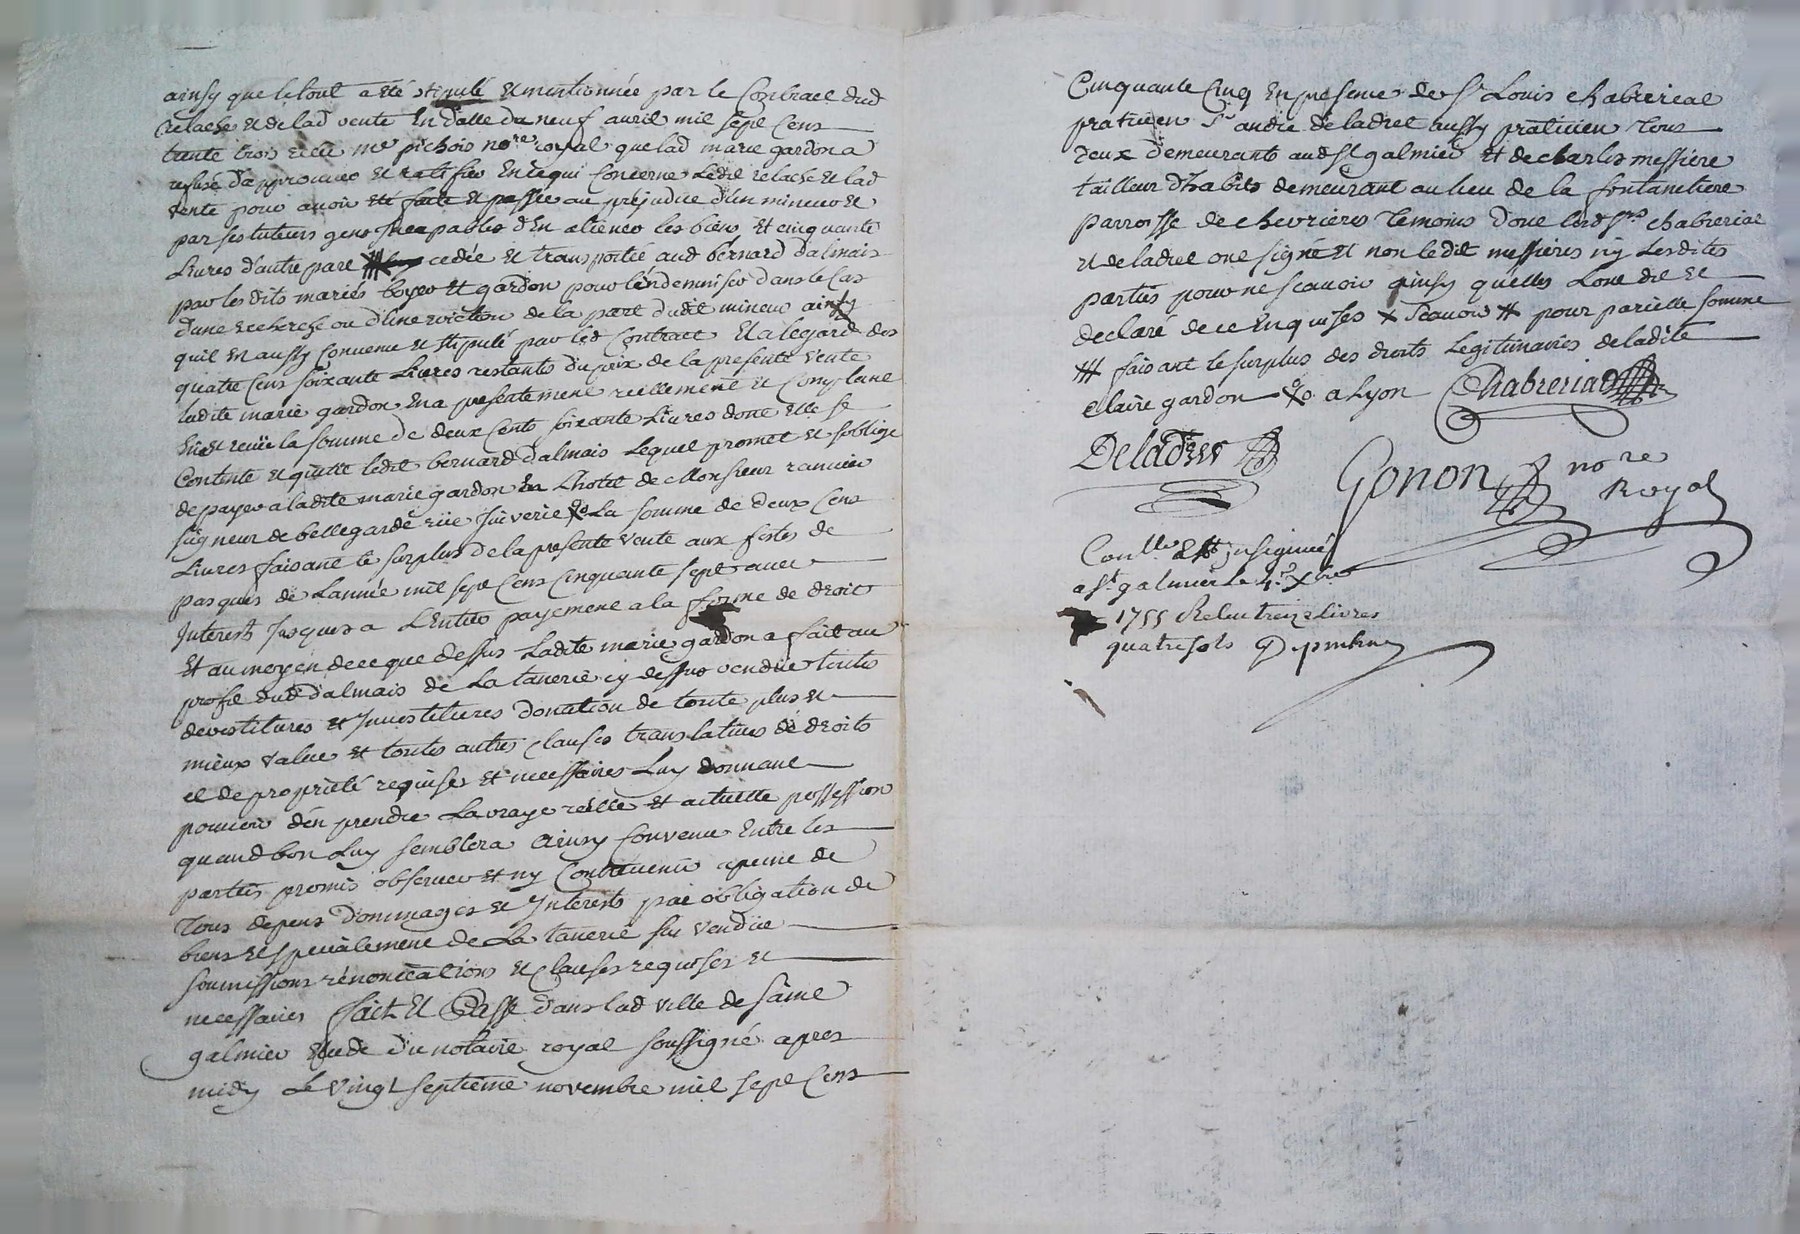 ainsy que letout a eté stipulé et mentionnée par le Contract dud
relache et delad vente En datte du neuf avril mil sept Cens
trente trois recu me pichois nore royal que lad marie gardon a
refusé d'approuver et ratifier Ence qui Concerne Ledit relache et lad
vente pour avoir eté faite et passée au préjudice d'un mineur et
par ses tuteurs gens Incapables d'En aliener les biens et cinquante
Livres d'autre part cedée et transportée aud bernard dalmais
par les dits mariés boyer et gardon pour l'indemniser dans le Cas
d'une recherche ou d'Une eviction de la part dudit mineur ainsy
quil En aussy Convenu et stipulé par led Contract Et a legard des
quatre Cens soixante Livres restants du prix de la presente vente
ladite marie gardon En a presentement reellement et Comptant
Eüe et reçüe la somme de deux Cents soixante Livres dont elle se
Contente et quitte ledit bernard dalmais Lequel promet et soblige
de payer a ladite marie gardon En Lhotel de Monsieur rannier
seigneur de bellegarde rüe Juiverie La somme de deux Cens
Livres faisant le surplus de la presente vente aux festes de
pasques de Lannée mil sept Cens Cinquante sept avec
Interest Jusques a L'Entier payement a la forme de droit
Et au moyen de ce que dessus Ladite marie gardon a fait au
profit dud dalmais de La tanerie cy dessus vendüe toutes
devestitures et Jnvestitures donation de toute plus et
mieux value et toutes autres Clauses translatives de droits
et de propriété requises et necessaires Luy donnant
pouvoir d'en prendre La vraye réelle et actuelle possession
quand bon Luy semblera Ainsy Convenu Entre les
parties promis observer et ny Contrevenir a peine de
tous depens dommages et Jnterests par obligation de
biens et specialement de La tanerie sus vendüe
soumissions rénonciations et Clauses requises et
necessaires fait et Passé dans lad ville de saint
galmier Etude du notaire royal soussigné apres
midy Le vingt septieme novembre mil sept Cens
Cinquante Cinq En presence de Sr Louis chabrerial
praticien Sr andré deladret aussy praticien tous
deux demeurants aud St galmier et de charles messiere
tailleur d'habits demeurant au lieu de la fontanetiere
parroisse de chevrieres temoins dont lesd Srs chabrerial
et deladret ont signé et non ledit messieres ny Lesdites
parties pour ne scavoir ainsy quelles Lont dit et
declaré de ce Enquises x scavoir # pour pareille somme
# faisant le surplus des droits Legitimaires de ladite
claire gardon a Lyon Chabrerial
Deladret
Gonon nore
Royal
Conlle & insignué
a St galmier le 4e Xbre
1755 Relu treize Livres
quatre sols